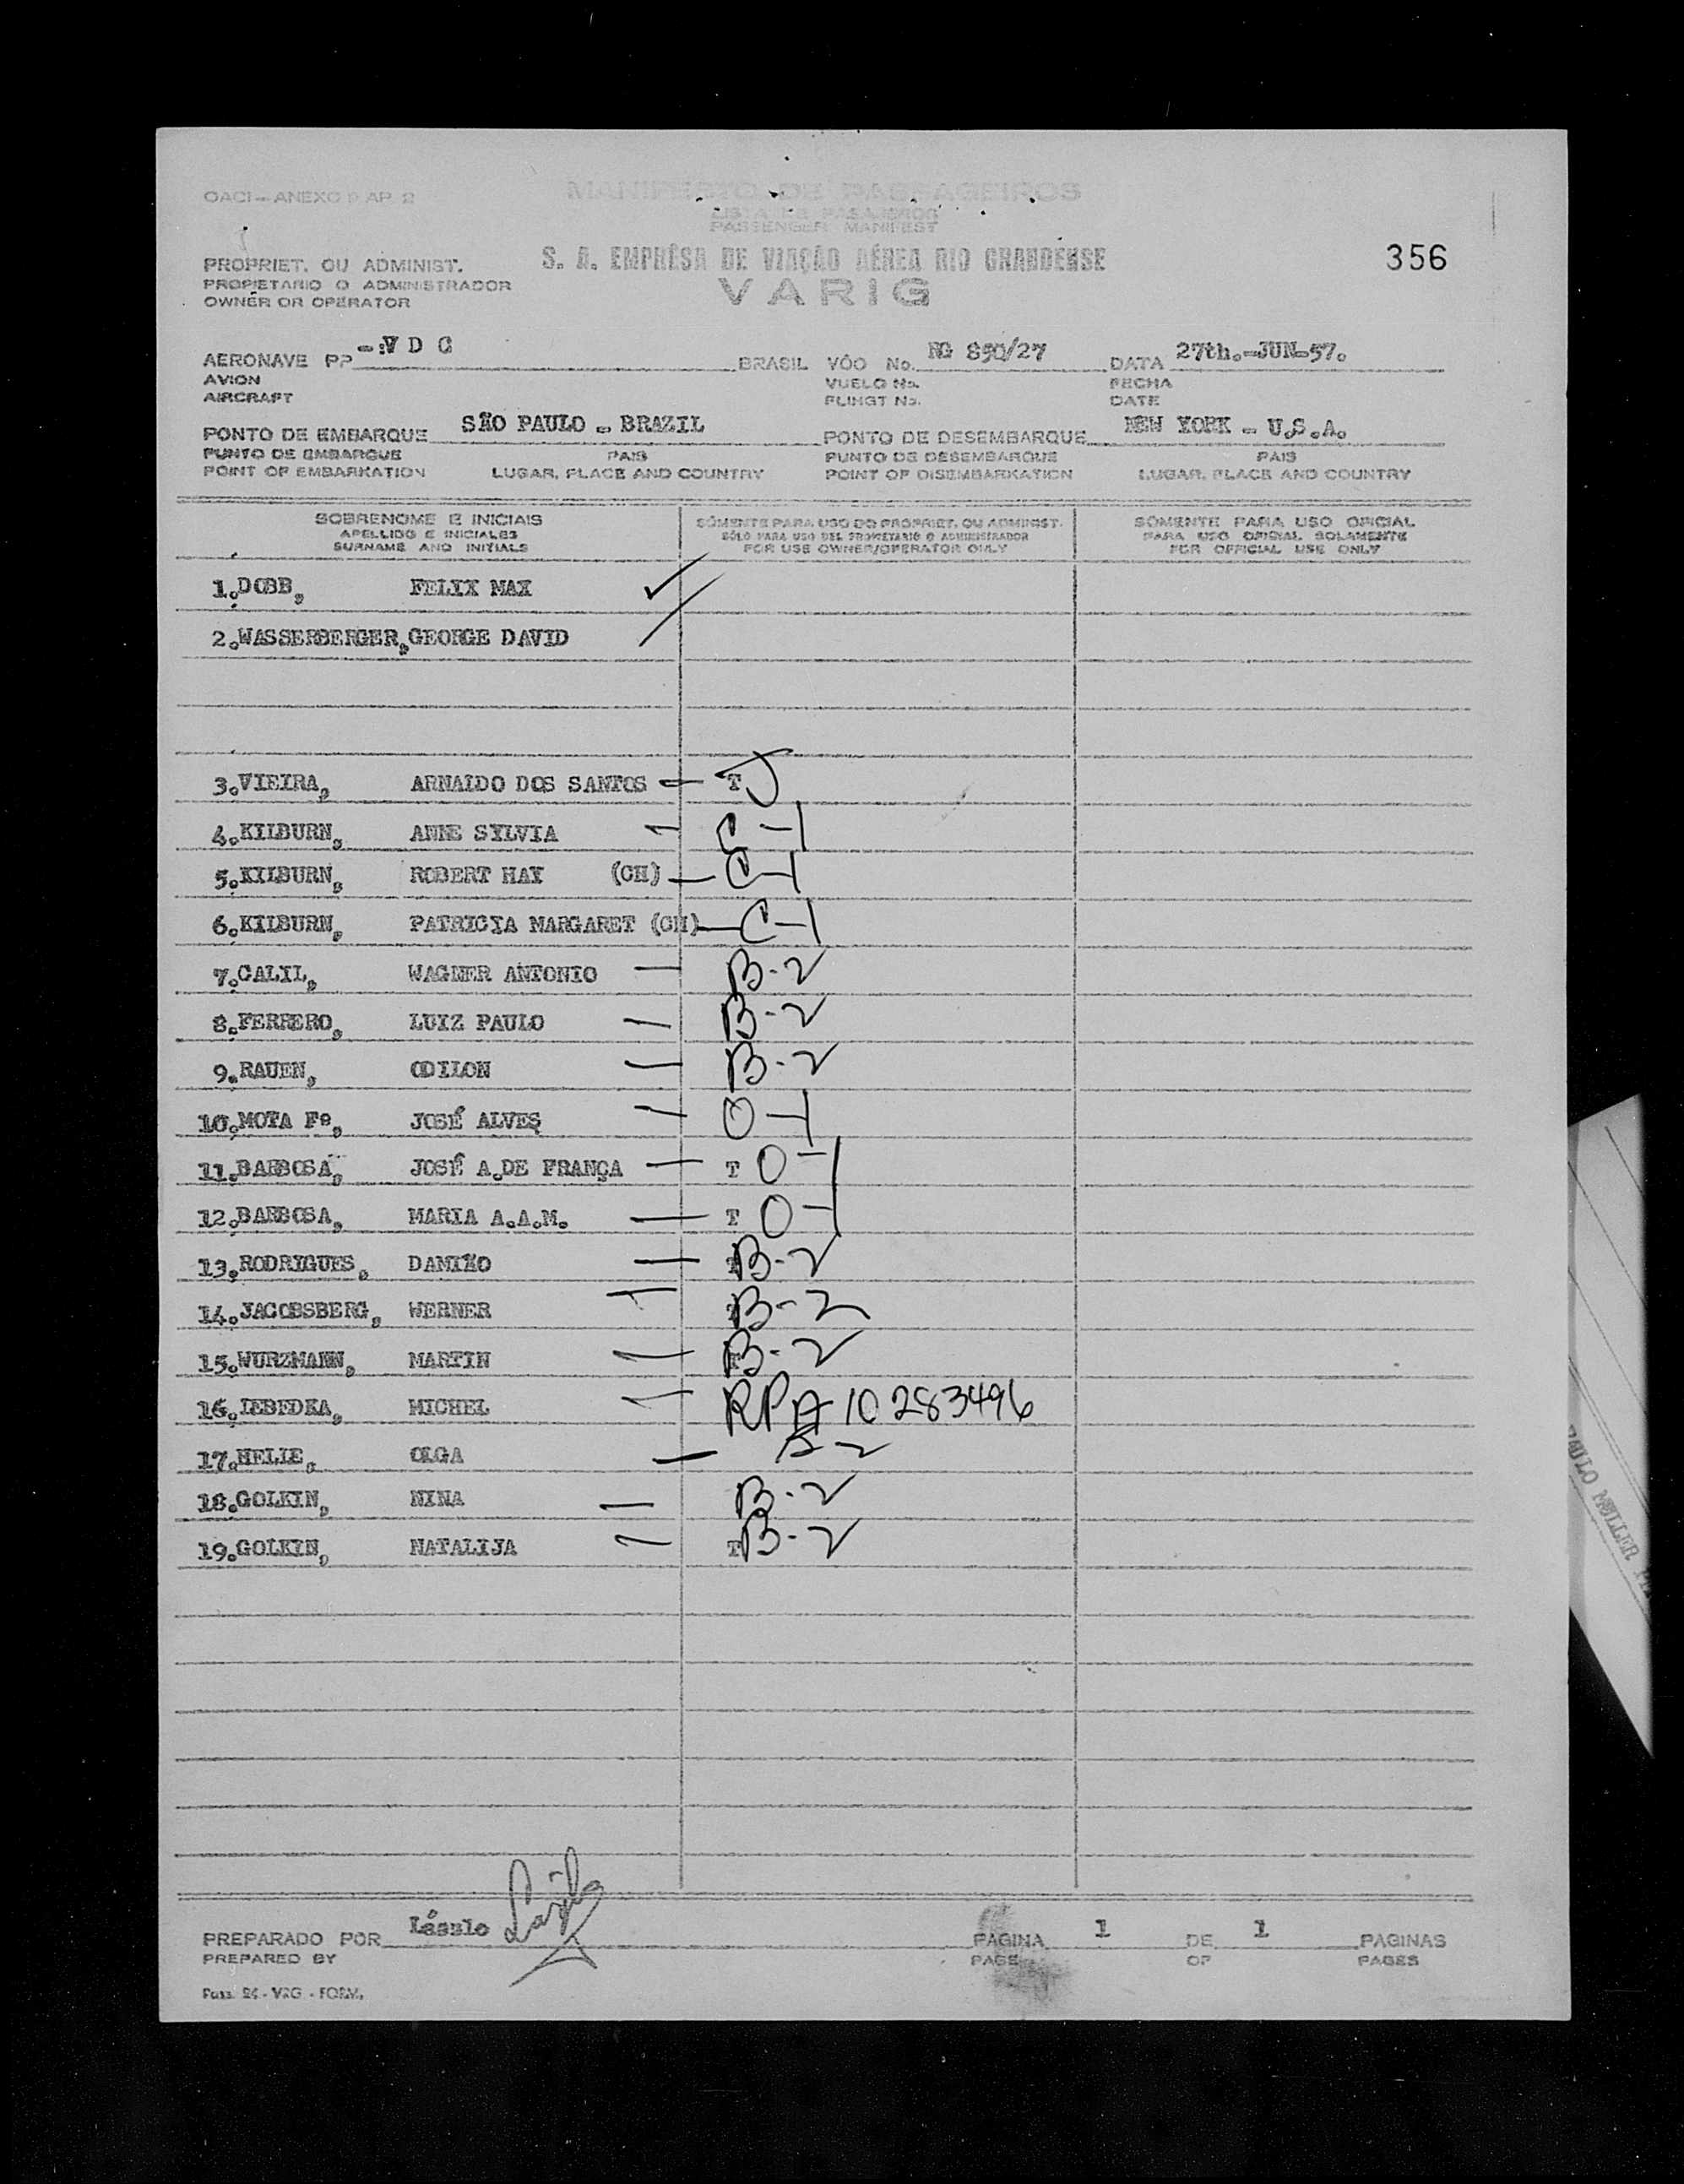 OACI - ANEXO 9 AP. 2
MANIFESTO DE PASSAGEIROS
LISTA DE PASAJEROS
PASSENGER MANIFEST
356
S. A. EMPRÊSA DE VIAÇÃO AÉREA RIO GRANDENSE
VARIG
PROPRIET. OU ADMINIST.
PROPIETARIO O ADMINISTRADOR
OWNER OR OPERATOR
AERONAVE PP -:V D C BRASIL VÔO No. RG 850/27 DATA 27th.-JUN-57.
AVION VUELO No. FECHA
AIRCRAFT FLINGT No. DATE
PONTO DE EMBARQUE SÃO PAULO - BRAZIL PONTO DE DESEMBARQUE NEW YORK - U.S.A.
PUNTO DE EMBARQUE PAIS PUNTO DE DESEMBARQUE PAIS
POINT OF EMBARKATION LUGAR, PLACE AND COUNTRY POINT OF DISEMBARKATION LUGAR, PLACE AND COUNTRY
SOBRENOME E INICIAIS SÓMENTE PARA USO DO PROPRIET. OU ADMINIST. SÓMENTE PARA USO OFICIAL
APELLIDO E INICIALES SÓLO PARA USO DEL PROPIETARIO O ADMINISTRADOR PARA USO OFICIAL SOLAMENTE
SURNAME AND INITIALS FOR USE OWNER/OPERATOR ONLY FOR OFFICIAL USE ONLY
1. DOBB, FELIX MAX
2. WASSERBERGER, GEORGE DAVID
3. VIEIRA, ARNALDO DOS SANTOS T
4. KILBURN, ANNE SYLVIA C-1
5. KILBURN, ROBERT HAY (CH) C-1
6. KILBURN, PATRICIA MARGARET (CH) C-1
7. CALIL, WAGNER ANTONIO B-2
8. FERRERO, LUIZ PAULO B-2
9. RAUEN, ODILON B-2
10. MOTA Fº, JOSÉ ALVES O-1
11. BARBOSA, JOSÉ A.DE FRANÇA T O-1
12. BARBOSA, MARIA A.A.M. T O-1
13. RODRIGUES, DAMIÃO B-2
14. JACOBSBERG, WERNER B-2
15. WURZMANN, MARTIN B-2
16. LEBEDKA, MICHEL RPA 10 283496
17. HELIE, OLGA
18. GOLKIN, NINA B-2
19. GOLKIN, NATALIJA T B-2
PREPARADO POR László PAGINA 1 DE 1 PAGINAS
PREPARED BY PAGE OF PAGES
PAULO MÜLLER